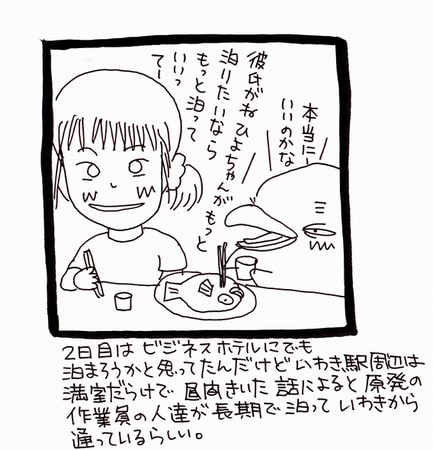 彼氏がね ひよちゃんがもっと
泊りたいなら
もっと泊って
いいっ
てー
本当に
いいのかな
2日目は ビジネスホテルにでも
泊まろうかと思ってたんだけど いわき駅周辺は
満室だらけで 昼間きいた話によると 原発の
作業員の人達が 長期で泊って いわきから
通っているらしい。